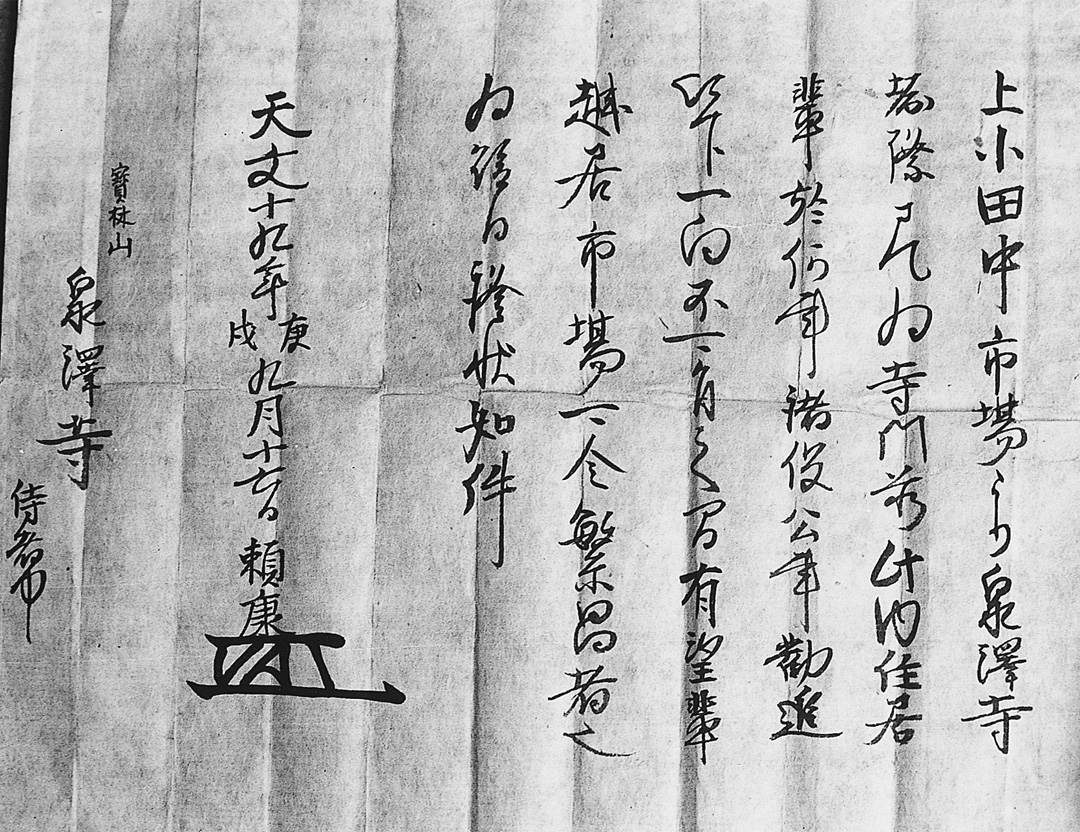 上小田中市場 泉澤寺
際 為寺門前此内住居
輩於何事諸役公事勧進
以下一向不可有之間有望輩
越居市場可令繁昌者也
為後日證状如件
天文十九年庚戌九月十六日 頼康
寶林山
泉澤寺
侍者中